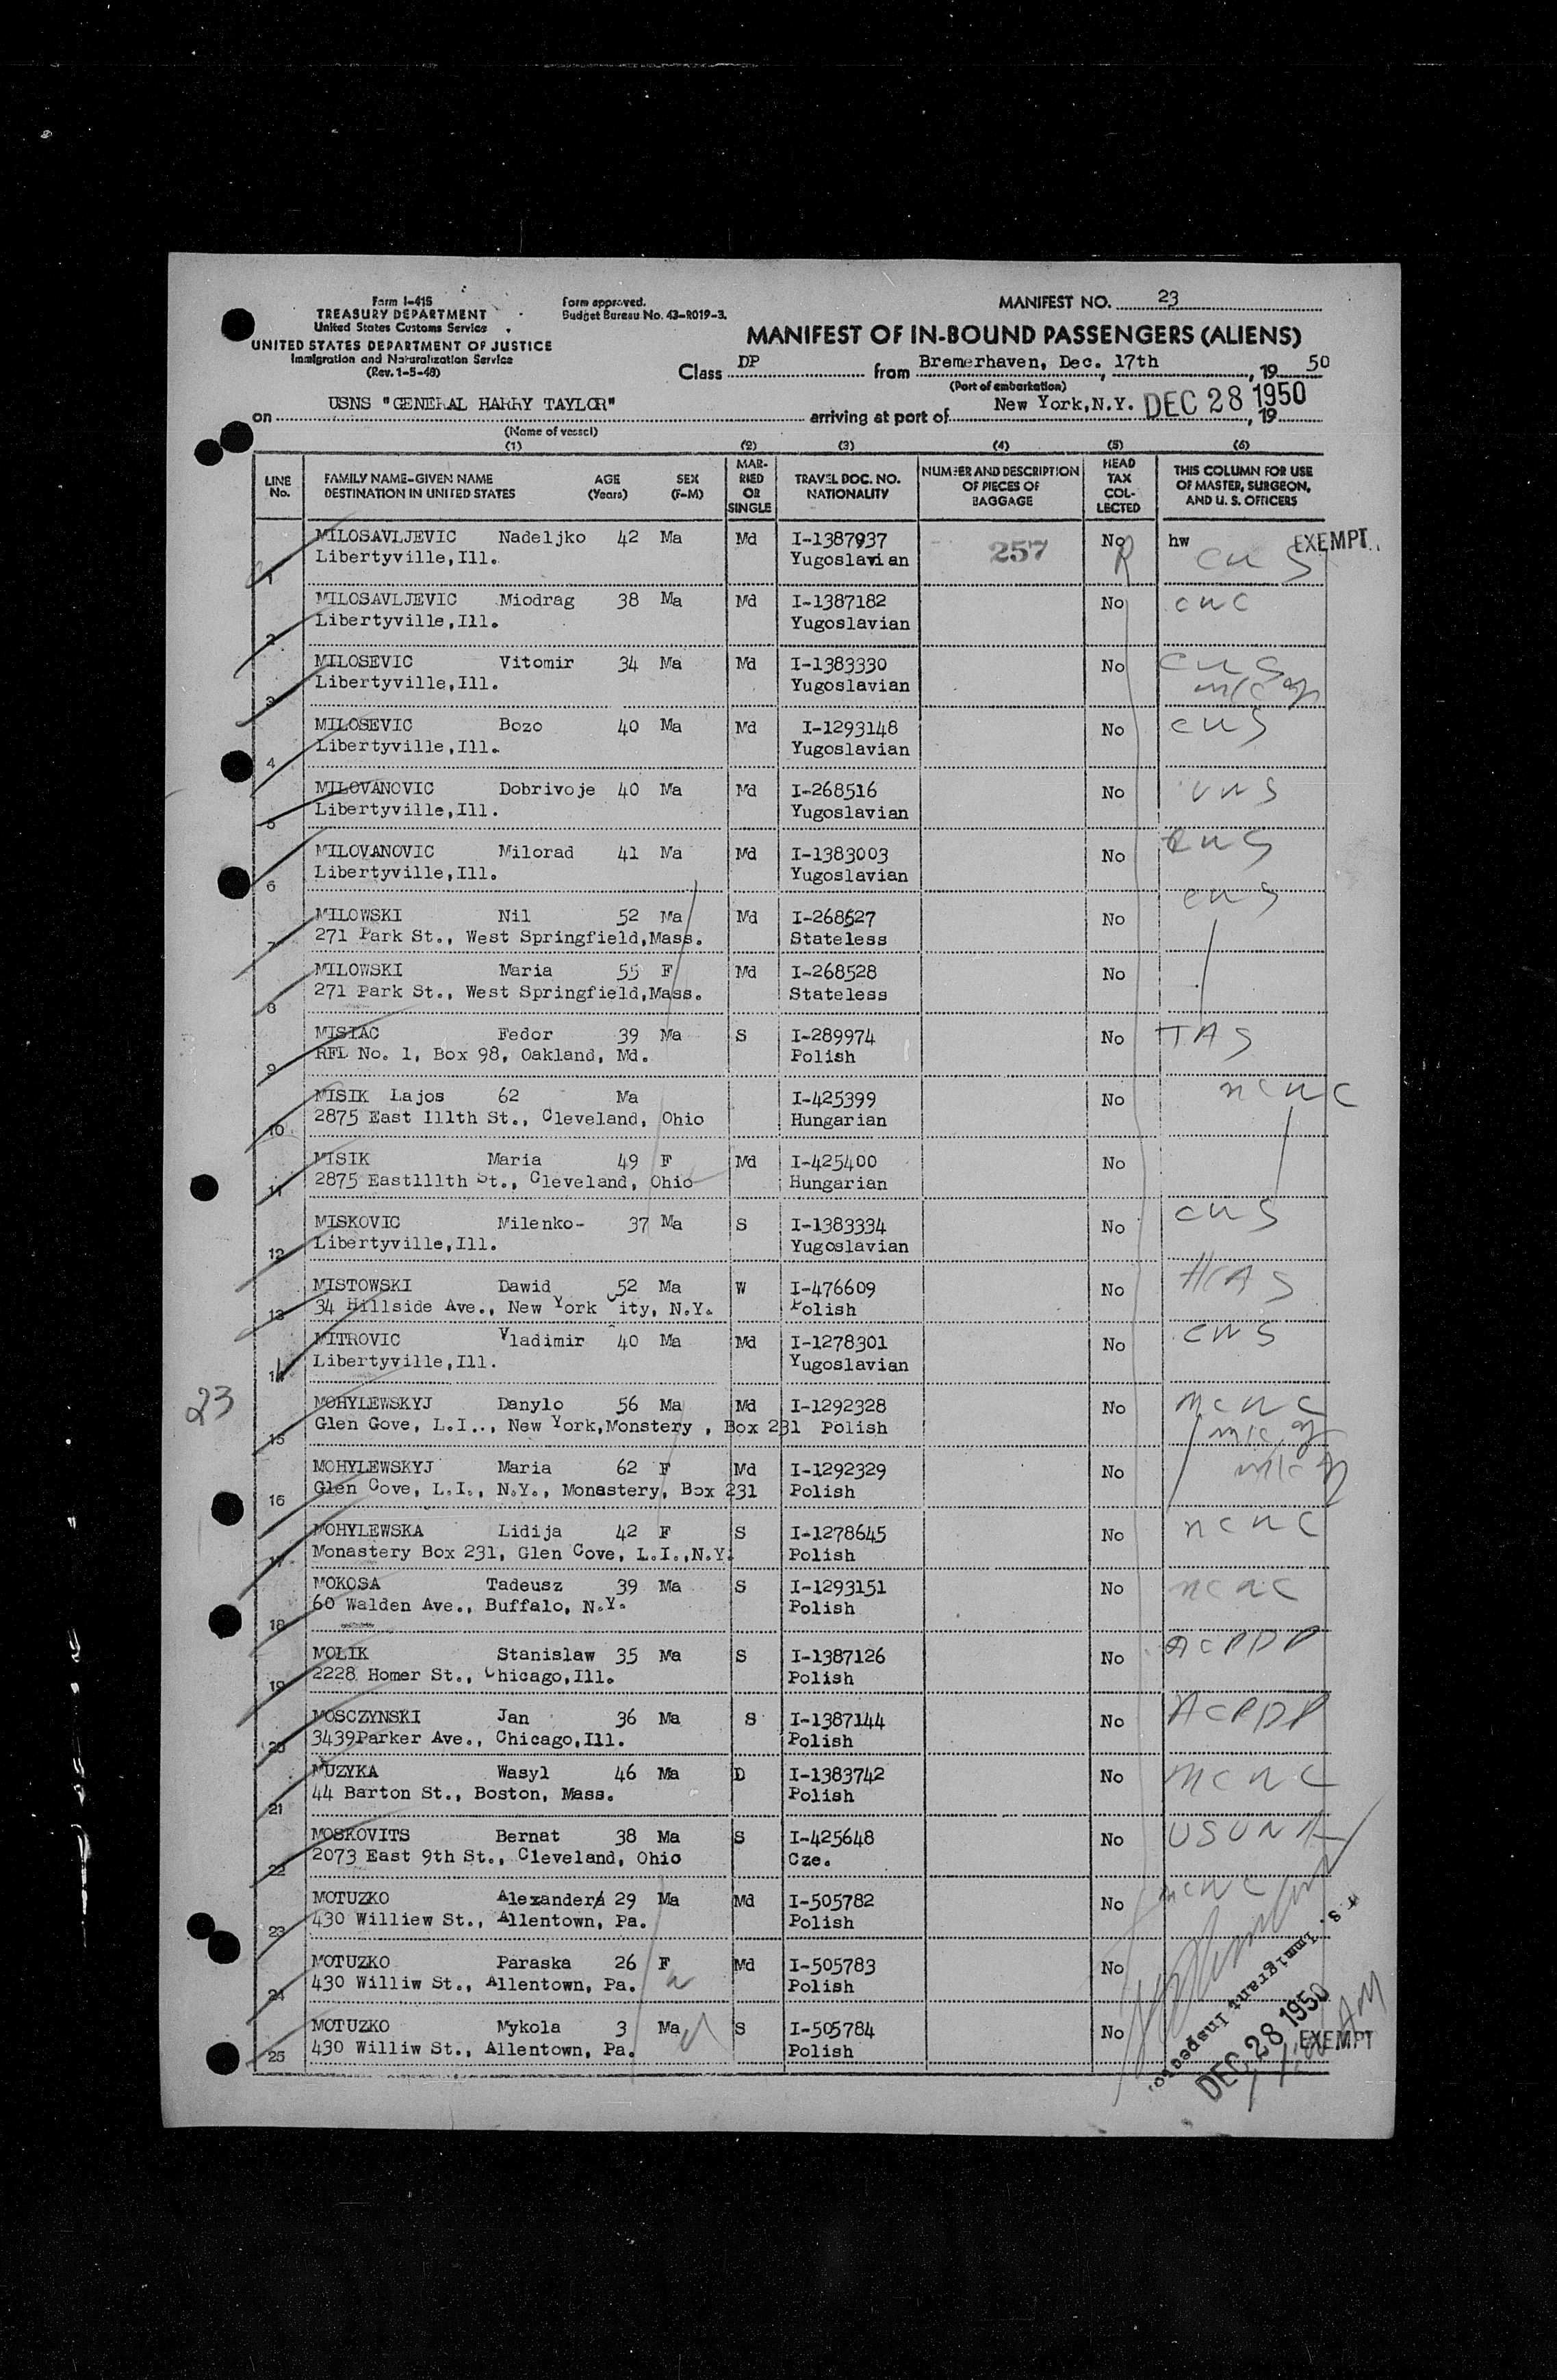 Form I-415
TREASURY DEPARTMENT
United States Customs Service
UNITED STATES DEPARTMENT OF JUSTICE
Immigration and Naturalization Service
(Rev. 1-5-48)
Form approved.
Budget Bureau No. 43-R019-3.
MANIFEST NO. 23
MANIFEST OF IN-BOUND PASSENGERS (ALIENS)
Class DP from Bremerhaven, Dec. 17th, 19 50
(Port of embarkation)
on USNS "GENERAL HARRY TAYLOR" arriving at port of New York,N.Y. DEC 28 1950, 19
(Name of vessel)
(1) (2) (3) (4) (5) (6)
LINE No. FAMILY NAME-GIVEN NAME DESTINATION IN UNITED STATES AGE (Years) SEX (F-M) MARRIED OR SINGLE TRAVEL DOC. NO. NATIONALITY NUMBER AND DESCRIPTION OF PIECES OF BAGGAGE HEAD TAX COLLECTED THIS COLUMN FOR USE OF MASTER, SURGEON, AND U. S. OFFICERS
MILOSAVLJEVIC Nadeljko 42 Ma Md I-1387937 257 No hw EXEMPT
1 Libertyville,Ill. Yugoslavian R cus
MILOSAVLJEVIC Miodrag 38 Ma Md I-1387182 No cuc
2 Libertyville,Ill. Yugoslavian
MILOSEVIC Vitomir 34 Ma Md I-1383330 No cus
3 Libertyville,Ill. Yugoslavian
MILOSEVIC Bozo 40 Ma Md I-1293148 No cus
4 Libertyville,Ill. Yugoslavian
MILOVANOVIC Dobrivoje 40 Ma Md I-268516 No
5 Libertyville,Ill. Yugoslavian
MILOVANOVIC Milorad 41 Ma Md I-1383003 No cus
6 Libertyville,Ill. Yugoslavian
MILOWSKI Nil 52 Ma Md I-268527 No cus
7 271 Park St., West Springfield,Mass. Stateless
MILOWSKI Maria 55 F Md I-268528 No
8 271 Park St., West Springfield,Mass. Stateless
MISIAC Fedor 39 Ma S I-289974 No TAS
9 RFL No. 1, Box 98, Oakland, Md. Polish
MISIK Lajos 62 Ma I-425399 No ncwc
10 2875 East 111th St., Cleveland, Ohio Hungarian
MISIK Maria 49 F Md I-425400 No
11 2875 East111th St., Cleveland, Ohio Hungarian
MISKOVIC Milenko- 37 Ma S I-1383334 No cus
12 Libertyville,Ill. Yugoslavian
MISTOWSKI Dawid 52 Ma W I-476609 No HIAS
13 34 Hillside Ave., New York City, N.Y. Polish
MITROVIC Vladimir 40 Ma Md I-1278301 No cws
14 Libertyville,Ill. Yugoslavian
23
MOHYLEWSKYJ Danylo 56 Ma Md I-1292328 No ncwc
15 Glen Gove, L.I.., New York,Monstery , Box 231 Polish
MOHYLEWSKYJ Maria 62 F Md I-1292329 No
16 Glen Cove, L.I., N.Y., Monastery, Box 231 Polish
MOHYLEWSKA Lidija 42 F S I-1278645 No ncwc
17 Monastery Box 231, Glen Cove, L.I.,N.Y. Polish
MOKOSA Tadeusz 39 Ma S I-1293151 No ncwc
18 60 Walden Ave., Buffalo, N.Y. Polish
MOLIK Stanislaw 35 Ma S I-1387126 No ACPDP
19 2228 Homer St., Chicago,Ill. Polish
MOSCZYNSKI Jan 36 Ma S I-1387144 No ACPDP
20 3439Parker Ave., Chicago,Ill. Polish
MUZYKA Wasyl 46 Ma D I-1383742 No ncwc
21 44 Barton St., Boston, Mass. Polish
MOSKOVITS Bernat 38 Ma S I-425648 No USUNA
22 2073 East 9th St., Cleveland, Ohio Cze.
MOTUZKO Alexander 29 Ma Md I-505782 No ncwc
23 430 Williew St., Allentown, Pa. Polish
MOTUZKO Paraska 26 F Md I-505783 No
24 430 Williw St., Allentown, Pa. Polish
MOTUZKO Mykola 3 Ma S I-505784 No
25 430 Williw St., Allentown, Pa. Polish
Immigrant Inspector.
DEC 28 1950
EXEMPT